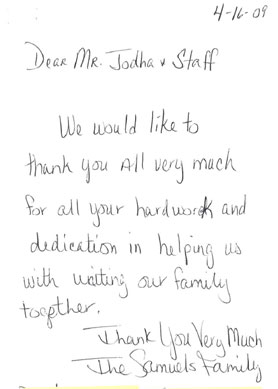 4-16-09
Dear Mr. Jodha & Staff
We would like to
thank you All very much
for all your hardwork and
dedication in helping us
with uniting our family
together.
Thank You Very Much
The Samuels Family